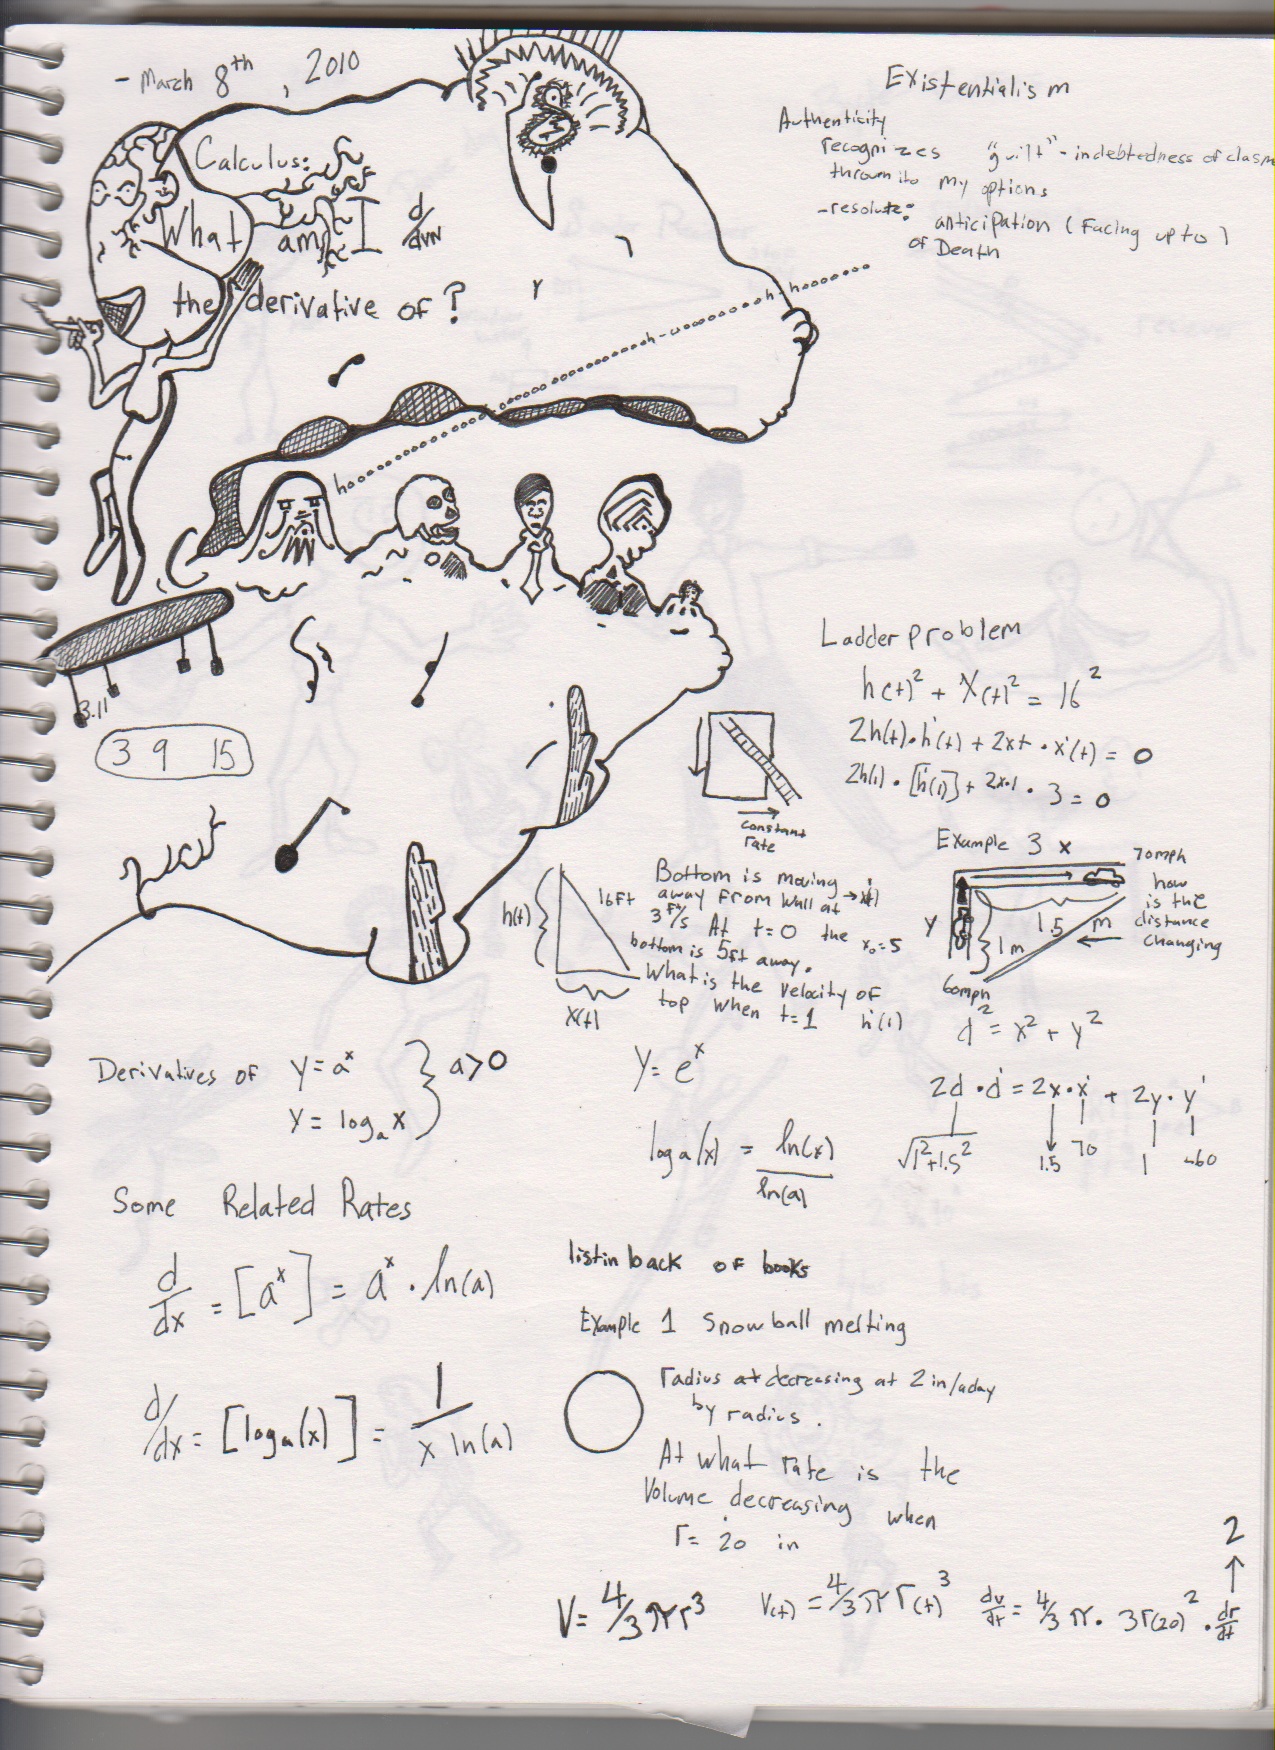 - March 8th, 2010
Calculus:
What am I d/dvn
the derivative of?
Existentialism
Authenticity
recognizes "guilt" - indebtedness of
my options
- resolute: anticipation (facing up to)
of Death
h
h-
h-h
3.11
3 9 15
Ladder problem
h(t)² + x(t)² = 16²
2h(t)·h'(t) + 2xt·x'(t) = 0
2h(1)·[h'(1)] + 2x1·3 = 0
constant
rate
h(t)
16ft
x(t)
Bottom is moving
away from wall at → x'(t)
3 ft/s At t=0 the x₀=5
bottom is 5ft away.
What is the velocity of
top when t=1 h'(1)
Example 3 x
70mph
how
is the
distance
changing
y
1.5 m
1m
60mph
d² = x² + y²
2d·d' = 2x·x' + 2y·y'
√1²+1.5² 1.5 70 1 -60
Derivatives of y = aˣ
y = logₐ x
} a>0
y = eˣ
logₐ(x) = ln(x)/ln(a)
Some Related Rates
d/dx = [aˣ] = aˣ · ln(a)
d/dx = [logₐ(x)] = 1/x ln(a)
list in back of books
Example 1 Snowball melting
radius at decreasing at 2 in/aday
by radius.
At what rate is the
Volume decreasing when
r = 20 in
2
V = 4/3 πr³ V(t) = 4/3 π r(t)³ dv/dt = 4/3 π · 3r(20)² · dr/dt